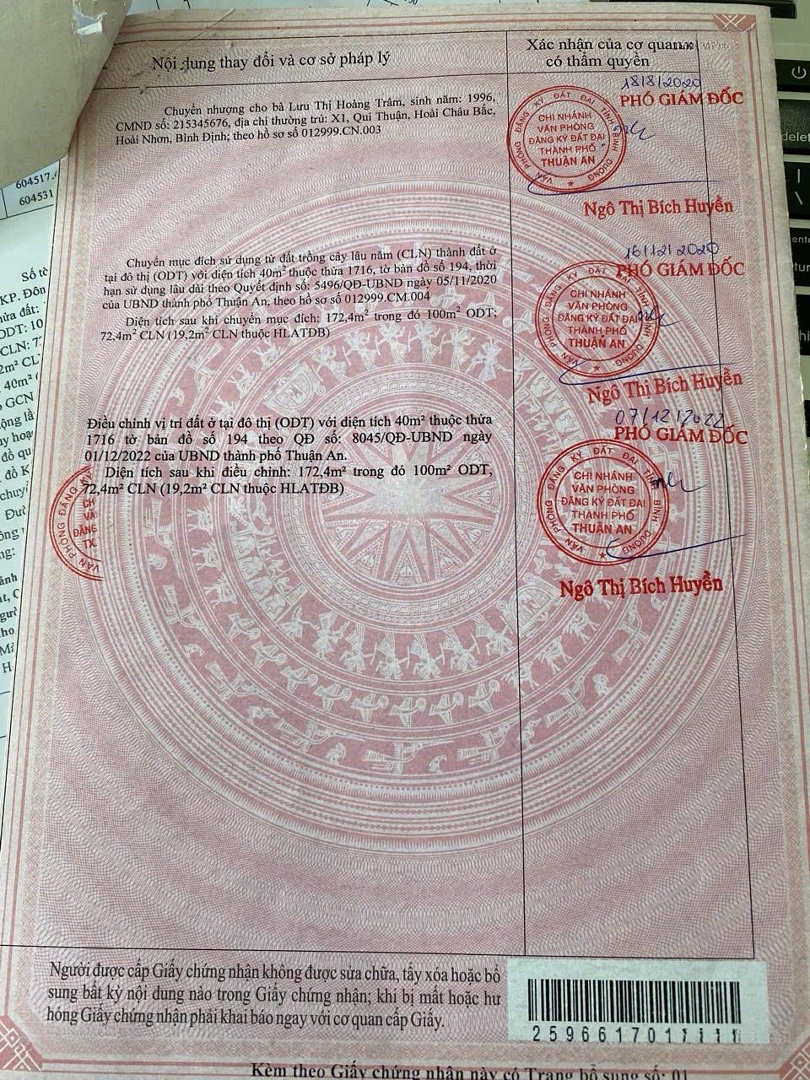 Nội dung thay đổi và cơ sở pháp lý
Xác nhận của cơ quan
có thẩm quyền
Chuyển nhượng cho bà Lưu Thị Hoàng Trâm, sinh năm: 1996,
CMND số: 215345676, địa chỉ thường trú: X1, Qui Thuận, Hoài Châu Bắc,
Hoài Nhơn, Bình Định; theo hồ sơ số 012999.CN.003
18/8/2020
PHÓ GIÁM ĐỐC
VĂN PHÒNG ĐĂNG KÝ ĐẤT ĐAI TỈNH BÌNH DƯƠNG
CHI NHÁNH
VĂN PHÒNG
ĐĂNG KÝ ĐẤT ĐAI
THÀNH PHỐ
THUẬN AN
Ngô Thị Bích Huyền
Chuyển mục đích sử dụng từ đất trồng cây lâu năm (CLN) thành đất ở
tại đô thị (ODT) với diện tích 40m² thuộc thửa 1716, tờ bản đồ số 194, thời
hạn sử dụng lâu dài theo Quyết định số: 5496/QĐ-UBND ngày 05/11/2020
của UBND thành phố Thuận An, theo hồ sơ số 012999.CM.004
Diện tích sau khi chuyển mục đích: 172,4m² trong đó 100m² ODT;
72,4m² CLN (19,2m² CLN thuộc HLATĐB)
16/12/2020
PHÓ GIÁM ĐỐC
VĂN PHÒNG ĐĂNG KÝ ĐẤT ĐAI TỈNH BÌNH DƯƠNG
CHI NHÁNH
VĂN PHÒNG
ĐĂNG KÝ ĐẤT ĐAI
THÀNH PHỐ
THUẬN AN
Ngô Thị Bích Huyền
Điều chỉnh vị trí đất ở tại đô thị (ODT) với diện tích 40m² thuộc thửa
1716 tờ bản đồ số 194 theo QĐ số: 8045/QĐ-UBND ngày
01/12/2022 của UBND thành phố Thuận An.
Diện tích sau khi điều chỉnh: 172,4m² trong đó 100m² ODT,
72,4m² CLN (19,2m² CLN thuộc HLATĐB)
07/12/2022
PHÓ GIÁM ĐỐC
VĂN PHÒNG ĐĂNG KÝ ĐẤT ĐAI TỈNH BÌNH DƯƠNG
CHI NHÁNH
VĂN PHÒNG
ĐĂNG KÝ ĐẤT ĐAI
THÀNH PHỐ
THUẬN AN
Ngô Thị Bích Huyền
VĂN PHÒNG ĐĂNG KÝ
Người được cấp Giấy chứng nhận không được sửa chữa, tẩy xóa hoặc bổ
sung bất kỳ nội dung nào trong Giấy chứng nhận; khi bị mất hoặc hư
hỏng Giấy chứng nhận phải khai báo ngay với cơ quan cấp Giấy.
Kèm theo Giấy chứng nhận này có Trang bổ sung số: 01
604531
Số tờ
KP. Đôn
delete
enter